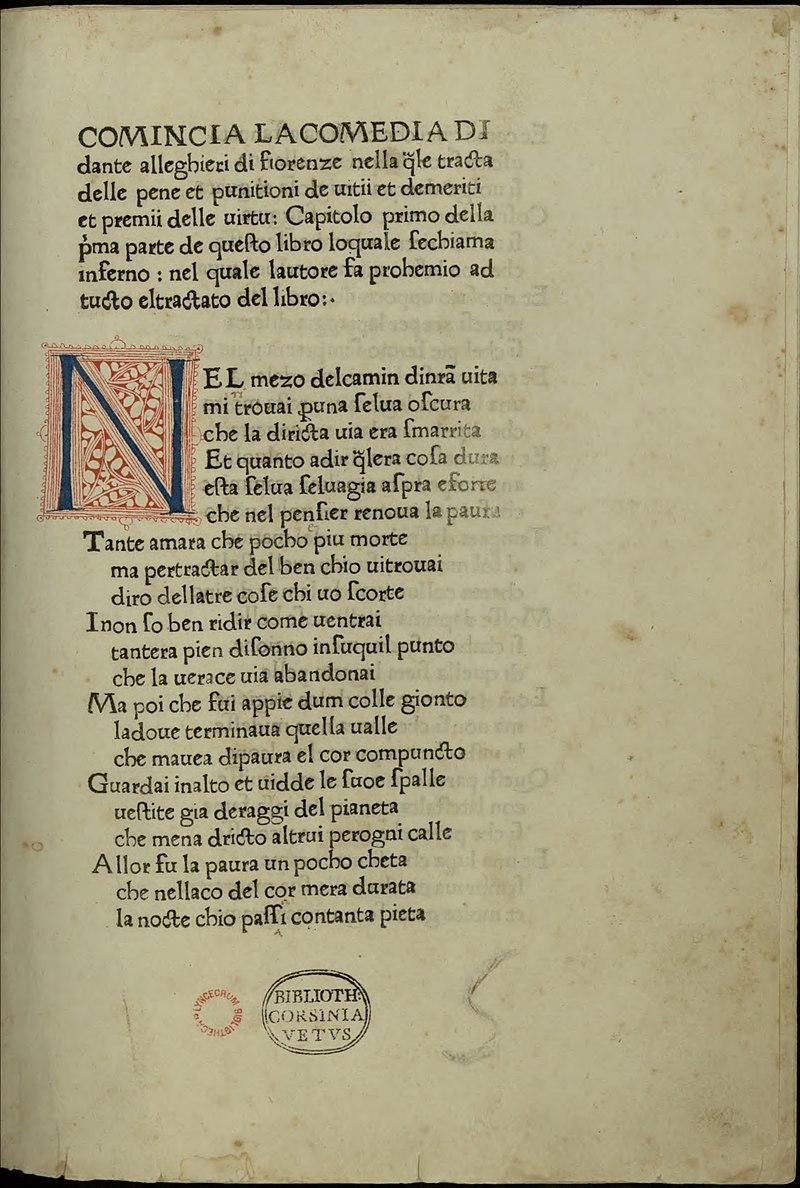 COMINCIA LACOMEDIA DI
dante alleghieri di fiorenze nella q̃le tracta
delle pene et punitioni de uitii et demeriti
et premii delle uirtu: Capitolo primo della
p̃ma parte de queſto libro loquale ſechiama
inferno : nel quale lautore fa prohemio ad
tucto eltractato del libro:·
NEL mezo delcamin dinr̃a uita
mi trouai ꝑuna ſelua oſcura
che la diricta uia era ſmarrita
Et quanto adir q̃lera coſa dura
eſta ſelua ſeluagia aſpra eforte
che nel penſier renoua la paura
Tante amara che pocho piu morte
ma pertractar del ben chio uitrouai
diro dellatre coſe chi uo ſcorte
I non ſo ben ridir come uentrai
tantera pien diſonno inſuquil punto
che la uerace uia abandonai
Ma poi che fui appie dum colle gionto
ladoue terminaua quella ualle
che mauea dipaura el cor compuncto
Guardai inalto et uidde le ſuoe ſpalle
ueſtite gia deraggi del pianeta
che mena dricto altrui perogni calle
Allor fu la paura un pocho cheta
che nellaco del cor mera durata
la nocte chio paſſi contanta pieta
BIBLIOTH.
CORSINIA
VETVS
LYNCEORUM BIBLIOTHECA